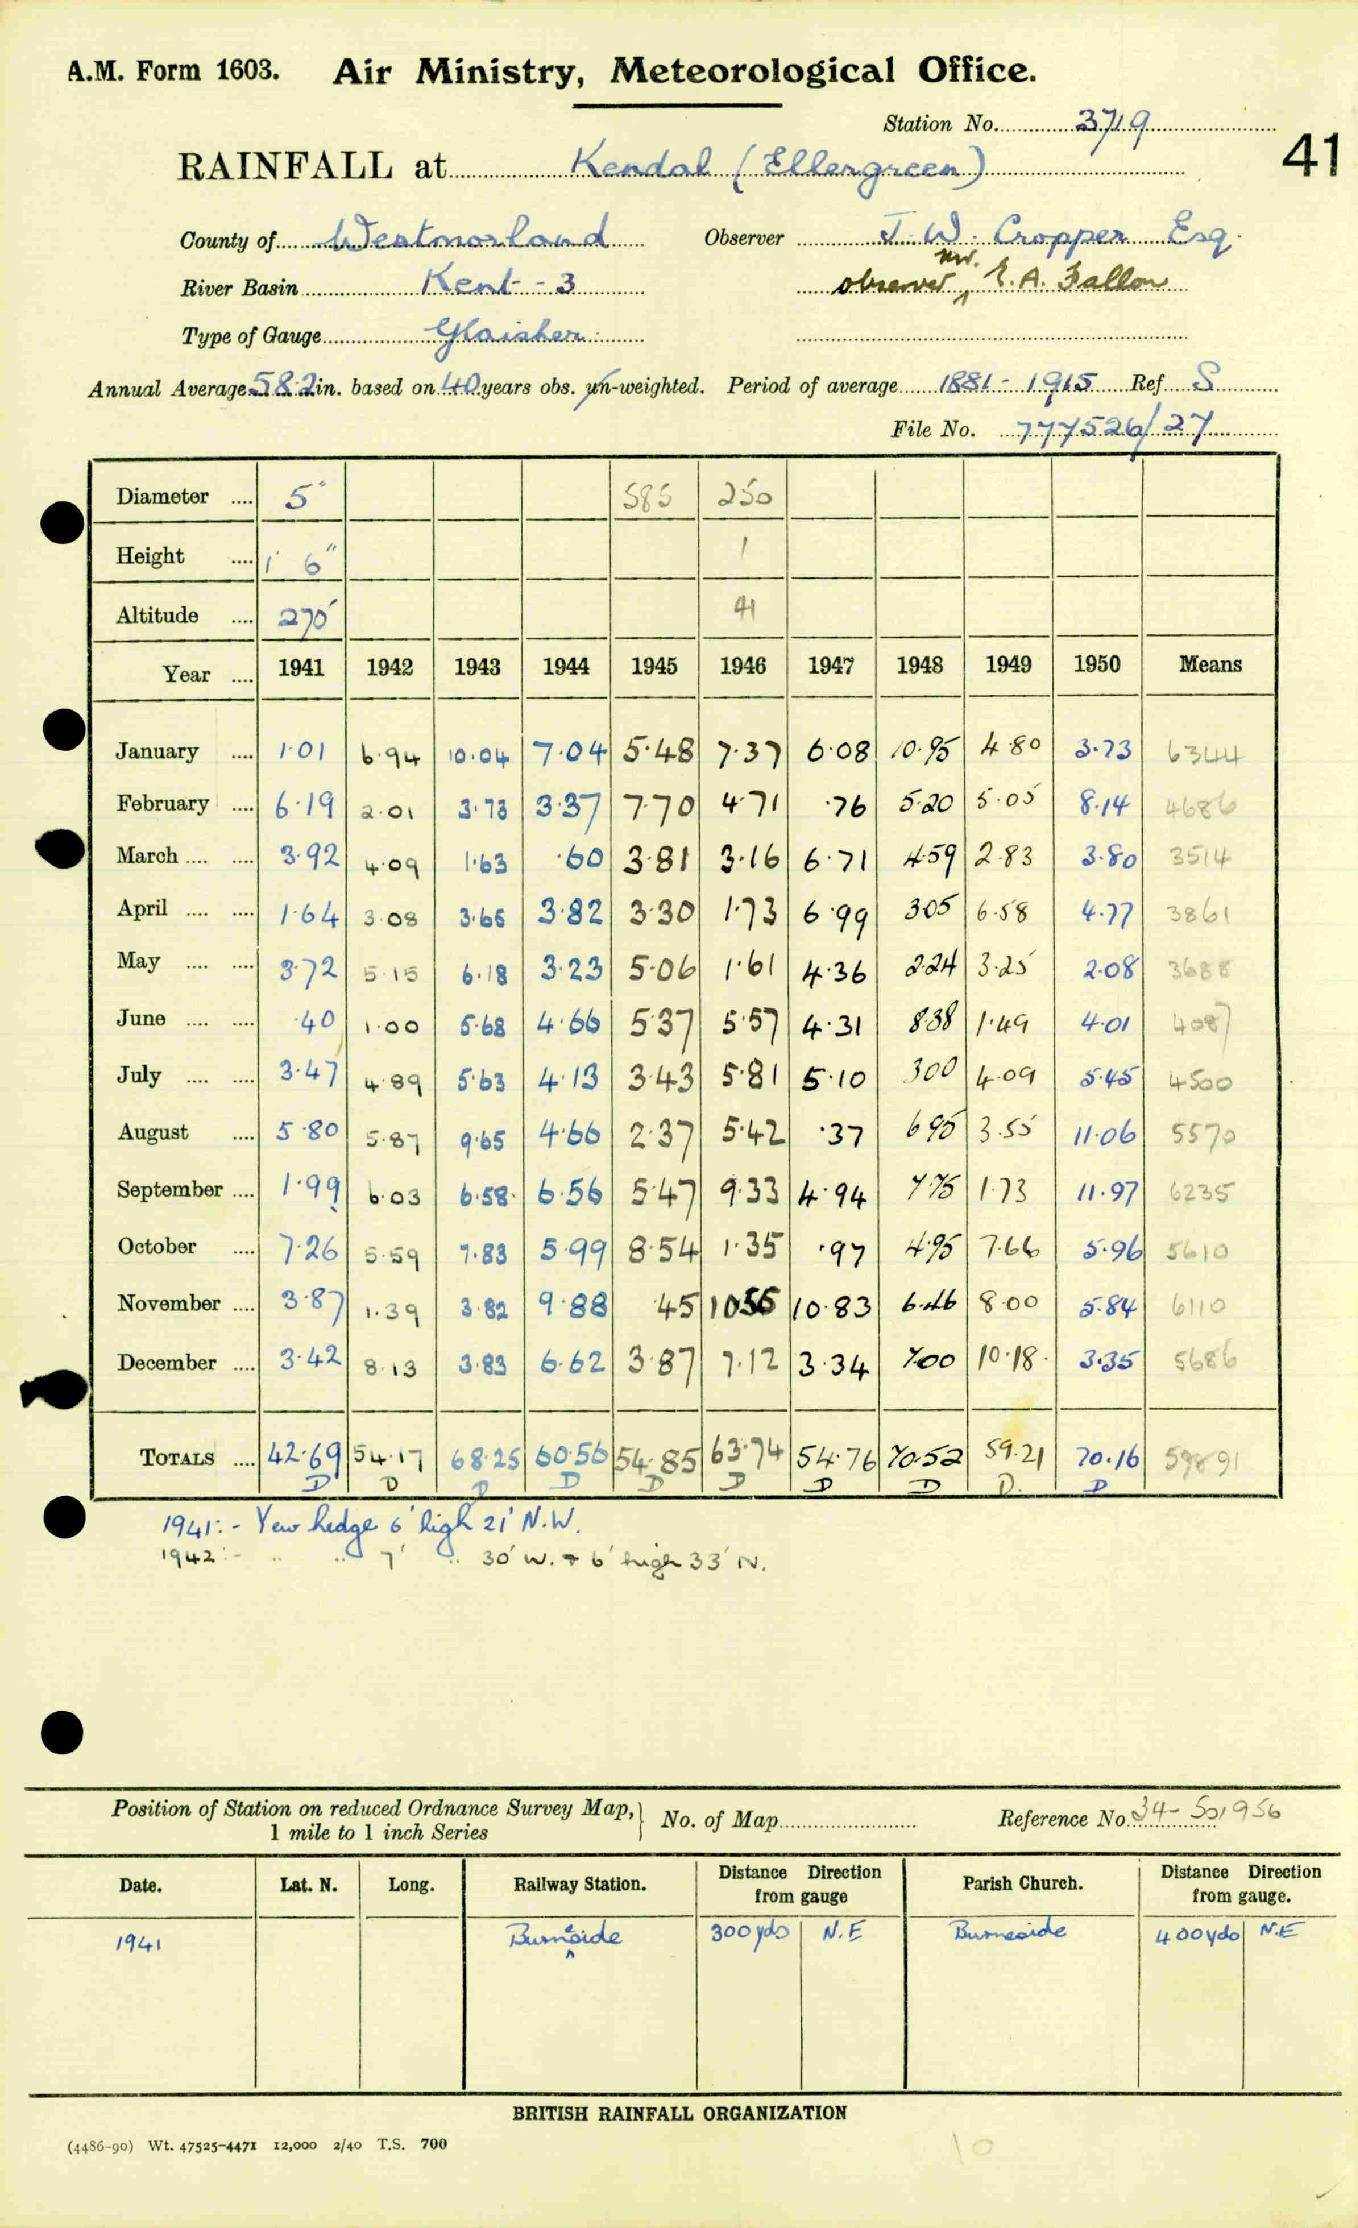 A.M. Form 1603. Air Ministry, Meteorological Office.
Station No. 3719
41
RAINFALL at Kendal (Ellergreen)
County of Westmorland Observer J. W. Cropper Esq.
River Basin Kent - 3 observer, mr. E. A. Fallon
Type of Gauge Glaisher
Annual Average 58.2 in. based on 40 years obs. un-weighted. Period of average 1881 - 1915 Ref. S
File No. 777526/27
Diameter .... 5" 585 250
Height .... 1' 6" 1
Altitude .... 270' 41
Year .... 1941 1942 1943 1944 1945 1946 1947 1948 1949 1950 Means
January .... 1.01 6.94 10.04 7.04 5.48 7.37 6.08 10.95 4.80 3.73 6344
February .... 6.19 2.01 3.73 3.37 7.70 4.71 .76 5.20 5.05 8.14 4686
March .... .... 3.92 4.09 1.63 .60 3.81 3.16 6.71 4.59 2.83 3.80 3514
April .... .... 1.64 3.08 3.65 3.82 3.30 1.73 6.99 3.05 6.58 4.77 3861
May .... .... 3.72 5.15 6.18 3.23 5.06 1.61 4.36 2.24 3.25 2.08 3688
June .... .... .40 1.00 5.68 4.66 5.37 5.57 4.31 8.38 1.49 4.01 4087
July .... .... 3.47 4.89 5.63 4.13 3.43 5.81 5.10 3.00 4.09 5.45 4500
August .... 5.80 5.87 9.65 4.66 2.37 5.42 .37 6.95 3.55 11.06 5570
September .... 1.99 6.03 6.58 6.56 5.47 9.33 4.94 7.75 1.73 11.97 6235
October .... 7.26 5.59 7.83 5.99 8.54 1.35 .97 4.95 7.66 5.96 5610
November .... 3.87 1.39 3.82 9.88 .45 10.55 10.83 6.46 8.00 5.84 6110
December .... 3.42 8.13 3.83 6.62 3.87 7.12 3.34 7.00 10.18 3.35 5686
TOTALS .... 42.69 54.17 68.25 60.56 54.85 63.74 54.76 70.52 59.21 70.16 59891
D D D D D D D D D. D
1941:- Yew hedge 6' high 21' N.W.
1942:- " " 7' " 30' W. + 6' high 33' N.
Position of Station on reduced Ordnance Survey Map, } No. of Map Reference No. 34-501956
1 mile to 1 inch Series
Date. Lat. N. Long. Railway Station. Distance Direction from gauge Parish Church. Distance Direction from gauge.
1941 Burneside 300 yds N.E Burneside 400 yds N.E
BRITISH RAINFALL ORGANIZATION
(4486-90) Wt. 47525-4471 12,000 2/40 T.S. 700
10